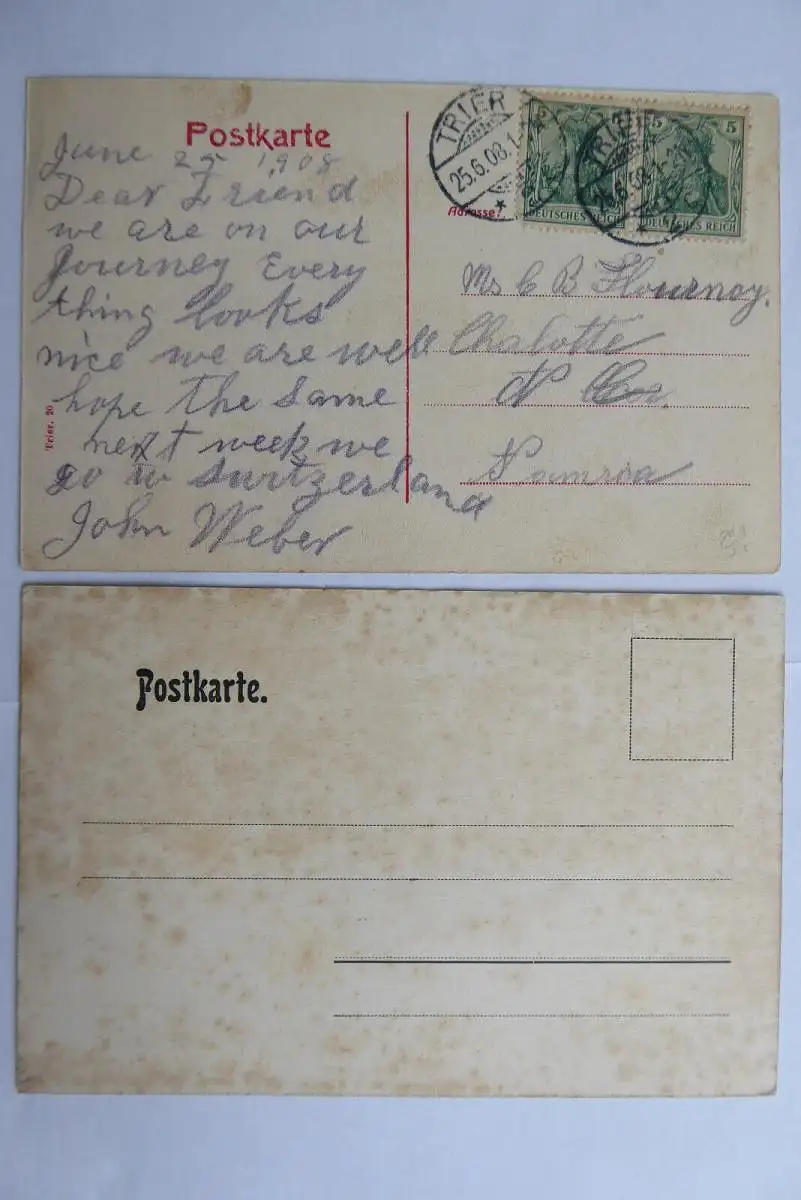 Postkarte
June 25 1908
Dear Friend
we are on our
Journey Every
thing looks
nice we are well
hope the same
next week we
go to Switzerland
John Weber
Trier. 20
TRIER
25.6.08.1-2
TRIER
25.6.08.1-2
5
5
DEUTSCHES REICH
DEUTSCHES REICH
Adresse:
Ms C B Flournoy.
Chalotte
N Car.
Postkarte.